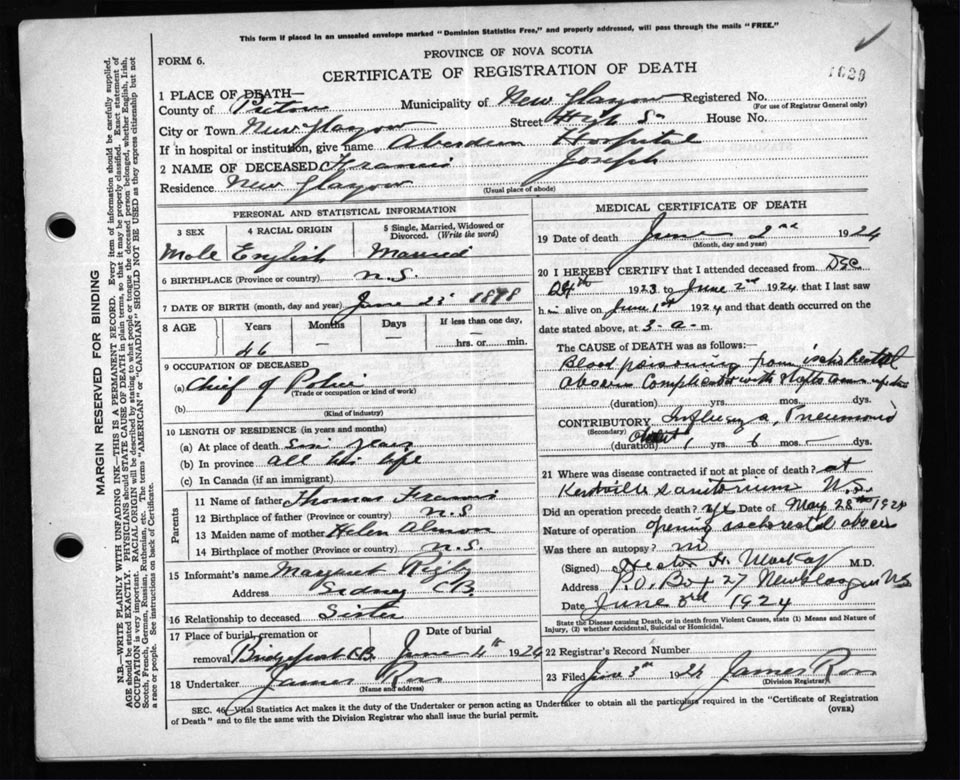 This form if placed in an unsealed envelope marked "Dominion Statistics Free," and properly addressed, will pass through the mails "FREE."
FORM 6.
PROVINCE OF NOVA SCOTIA
CERTIFICATE OF REGISTRATION OF DEATH
1629
1 PLACE OF DEATH—
County of Pictou Municipality of New Glasgow Registered No.
(For use of Registrar General only)
City or Town New Glasgow Street High St House No.
If in hospital or institution, give name Aberdeen Hospital
2 NAME OF DECEASED Francis Joseph
Residence New Glasgow
(Usual place of abode)
PERSONAL AND STATISTICAL INFORMATION
3 SEX
Male
4 RACIAL ORIGIN
English
5 Single, Married, Widowed or Divorced. (Write the word)
Married
6 BIRTHPLACE (Province or country) N.S.
7 DATE OF BIRTH (month, day and year) June 23 1878
8 AGE
Years Months Days If less than one day,
46 — — — hrs. or min.
9 OCCUPATION OF DECEASED
(a) Chief of Police
(Trade or occupation or kind of work)
(b)
(Kind of industry)
10 LENGTH OF RESIDENCE (in years and months)
(a) At place of death Six years
(b) In province all his life
(c) In Canada (if an immigrant)
Parents
11 Name of father Thomas Francis
12 Birthplace of father (Province or country) N.S.
13 Maiden name of mother Helen Almon
14 Birthplace of mother (Province or country) N.S.
15 Informant's name Margaret Rigby
Address Sidney C.B.
16 Relationship to deceased Sister
17 Place of burial, cremation or removal Bridgeport C.B.
Date of burial June 4th 1924
18 Undertaker James Ross
(Name and address)
MEDICAL CERTIFICATE OF DEATH
19 Date of death June 2nd 1924
(Month, day and year)
20 I HEREBY CERTIFY that I attended deceased from Dec
1923 to June 2nd 1924 that I last saw
h alive on June 1st 1924 and that death occurred on the
date stated above, at 3 a m.
The CAUSE OF DEATH was as follows:—
Blood poisoning from ischiorectal
abscess Complicated with
(duration) yrs. mos. dys.
CONTRIBUTORY Influenza, Pneumonia
(Secondary)
(duration) 1 yrs. 6 mos. — dys.
21 Where was disease contracted if not at place of death? at
Kentville sanitorium N.S.
Did an operation precede death? yes Date of May 28th 1924
Nature of operation opening ischiorectal abscess
Was there an autopsy? no
(Signed) Hector H. MacKay M.D.
Address P.O. Box 27 New Glasgow NS
Date June 3rd 1924
State the Disease causing Death, or in death from Violent Causes, state (1) Means and Nature of Injury, (2) whether Accidental, Suicidal or Homicidal.
22 Registrar's Record Number
23 Filed June 3rd 1924 James Ross
(Division Registrar)
SEC. 46—Vital Statistics Act makes it the duty of the Undertaker or person acting as Undertaker to obtain all the particulars required in the "Certificate of Registration
of Death" and to file the same with the Division Registrar who shall issue the burial permit.
(OVER)
MARGIN RESERVED FOR BINDING
N.B.—WRITE PLAINLY WITH UNFADING INK—THIS IS A PERMANENT RECORD. Every item of information should be carefully supplied.
AGE should be stated EXACTLY. PHYSICIANS should STATE CAUSE OF DEATH in plain terms, so that it may be properly classified. Exact statement of
OCCUPATION is very important. RACIAL ORIGIN will be described by stating to what people or tongue the deceased person belonged, whether English, Irish,
Scotch, French, German, Russian, Ruthenian, etc. The terms "AMERICAN" or "CANADIAN" SHOULD NOT BE USED as they express citizenship but not
a race or people. See instructions on back of Certificate.